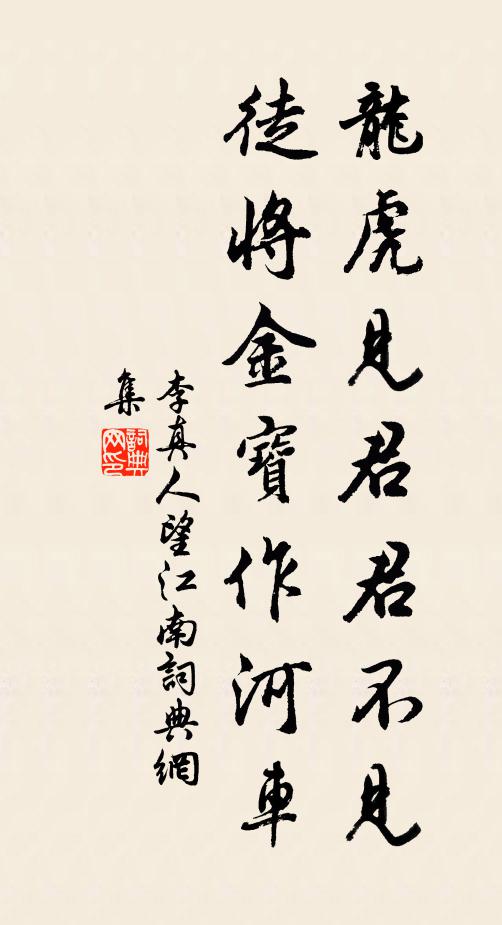 龍虎見君君不見
徒將金寶作河車
李真人望江南詞典網
集
詞典
网印